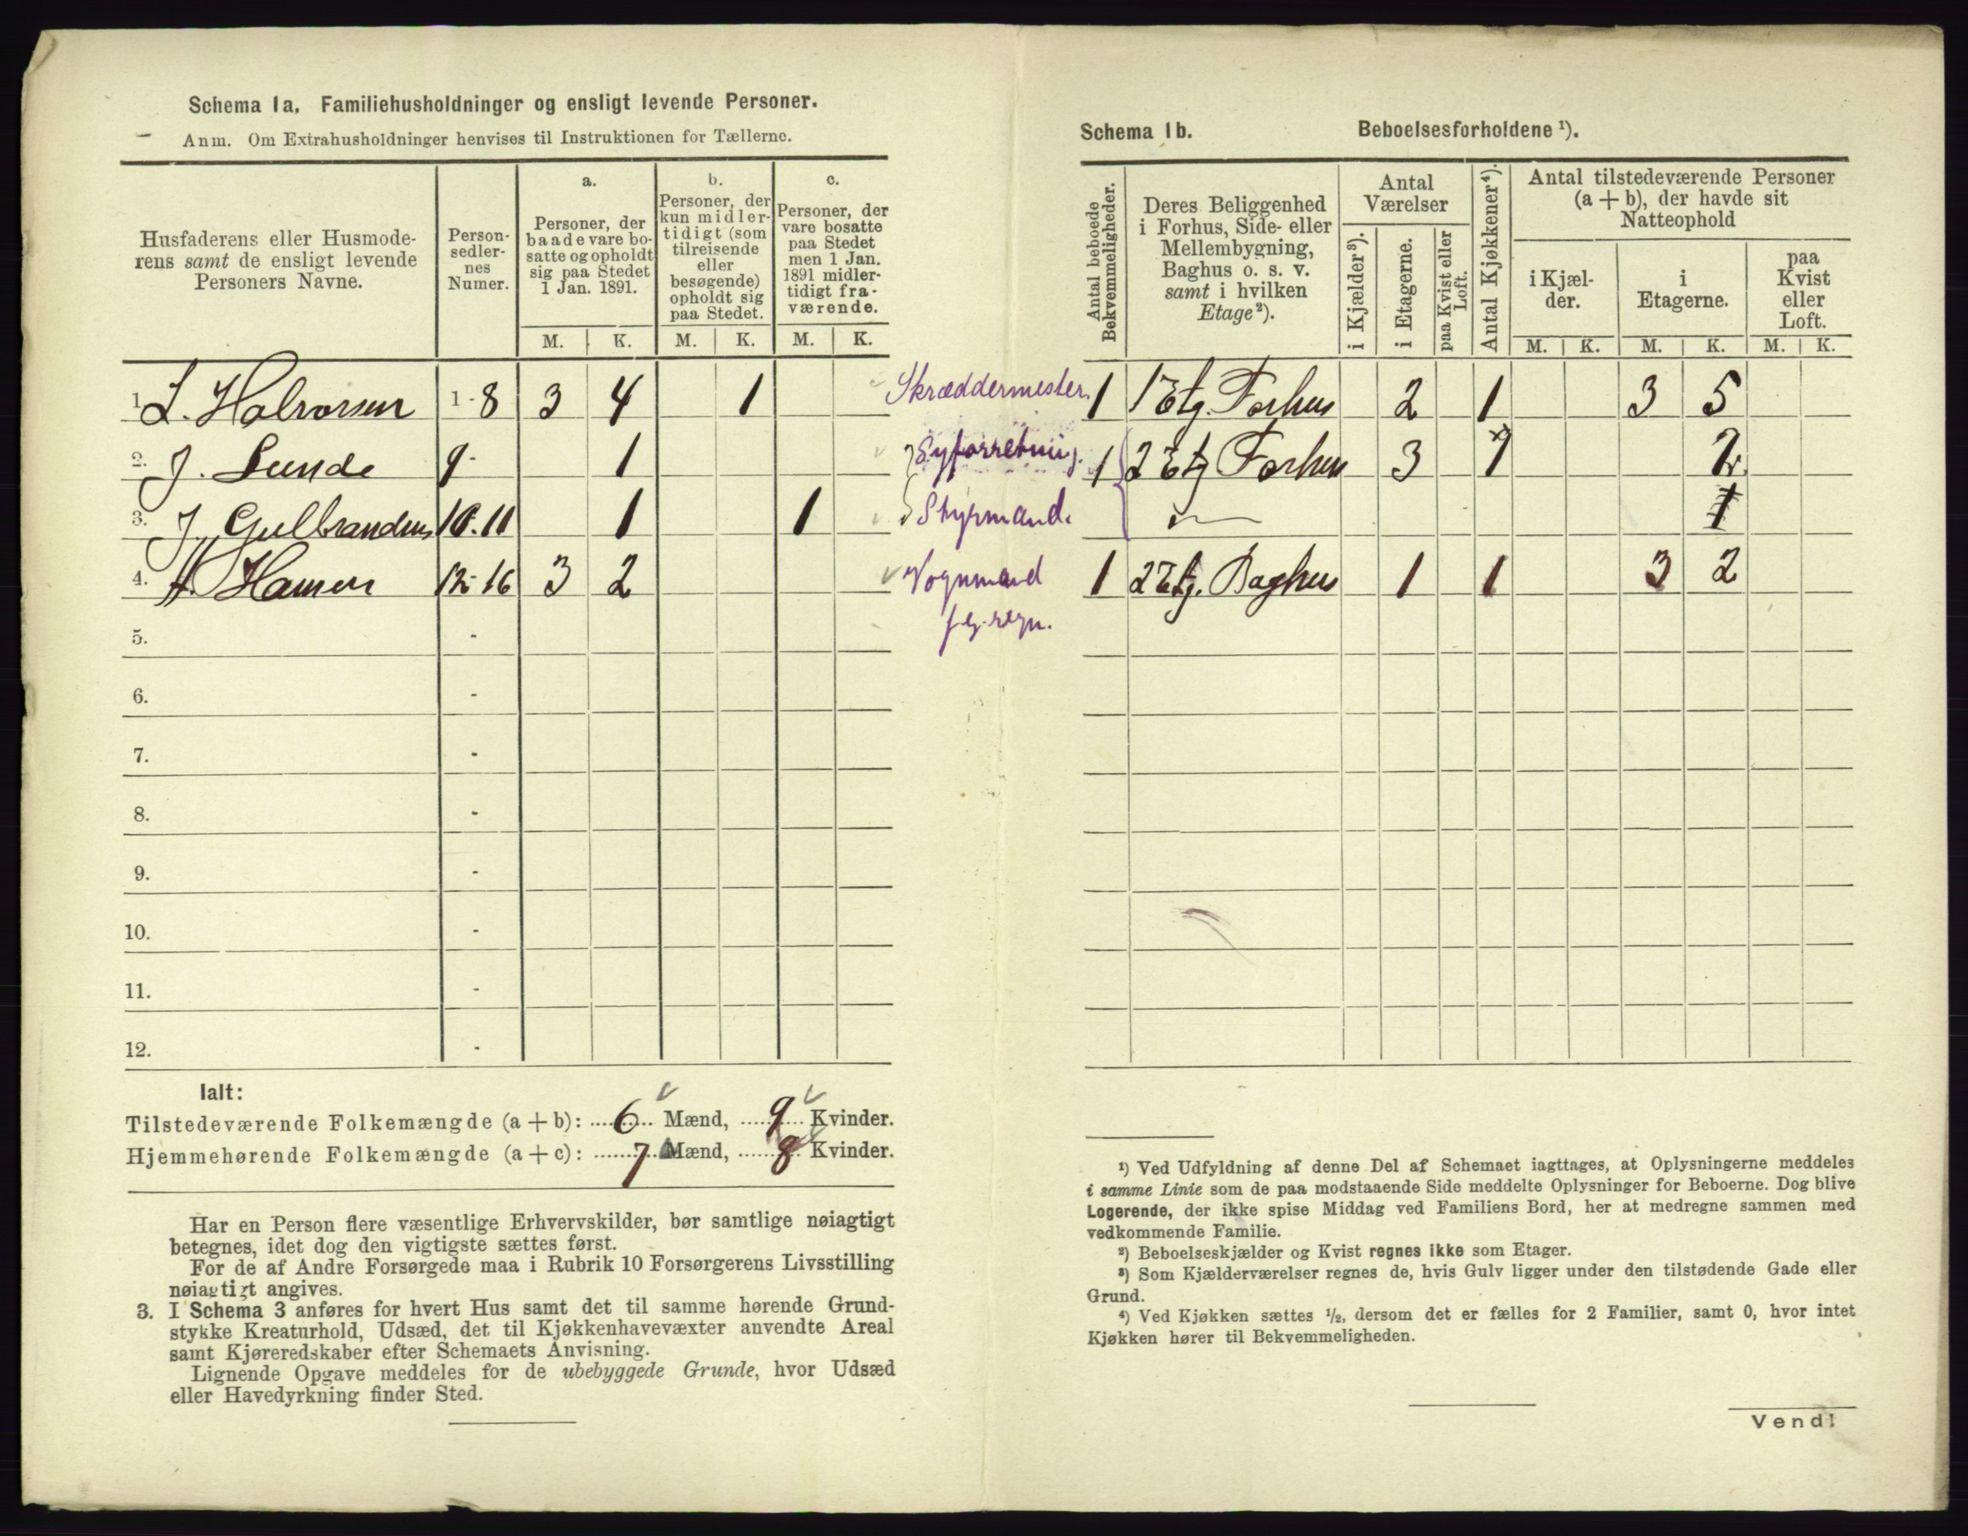 Schema 1a. Familiehusholdninger og ensligt levende Personer.
Anm. Om Extrahusholdninger henvises til Instruktionen for Tællerne.
Husfaderens eller Husmode-
rens samt de ensligt levende
Personers Navne.
Person-
sedler-
nes
Numer.
a.
Personer, der
baade vare bo-
satte og opholdt
sig paa Stedet
1 Jan. 1891.
b.
Personer, der
kun midler-
tidigt (som
tilreisende
eller
besøgende)
opholdt sig
paa Stedet.
c.
Personer, der
vare bosatte
paa Stedet
men 1 Jan.
1891 midler-
tidigt fra-
værende.
M. K. M. K. M. K.
1. L. Halvorsen 1-8 3 4 1 Skræddermester.
2. J. Lunde 9- 1 Syforretning.
3. J. Gulbrandsen 10.11 1 1 Styrmand.
4. A. Hansen 12-16 3 2 Vognmand
f. eg. regn.
5. -
6. -
7. -
8. -
9. -
10. -
11. -
12. -
Ialt:
Tilstedeværende Folkemængde (a + b): 6 Mænd, 9 Kvinder.
Hjemmehørende Folkemængde (a + c): 7 Mænd, 8 Kvinder.
Har en Person flere væsentlige Erhvervskilder, bør samtlige nøiagtigt
betegnes, idet dog den vigtigste sættes først.
For de af Andre Forsørgede maa i Rubrik 10 Forsørgerens Livsstilling
nøiagtigt angives.
3. I Schema 3 anføres for hvert Hus samt det til samme hørende Grund-
stykke Kreaturhold, Udsæd, det til Kjøkkenhavevæxter anvendte Areal
samt Kjøreredskaber efter Schemaets Anvisning.
Lignende Opgave meddeles for de ubebyggede Grunde, hvor Udsæd
eller Havedyrkning finder Sted.
Schema 1b. Beboelsesforholdene ¹).
Antal beboede
Bekvemmeligheder.
Deres Beliggenhed
i Forhus, Side- eller
Mellembygning,
Baghus o. s. v.
samt i hvilken
Etage²).
Antal
Værelser
i Kjælder³).
i Etagerne.
paa Kvist eller
Loft.
Antal Kjøkkener⁴).
Antal tilstedeværende Personer
(a + b), der havde sit
Natteophold
i Kjæl-
der.
i
Etagerne.
paa
Kvist
eller
Loft.
M. K. M. K. M. K.
1 1 Etg. Forhus 2 1 3 5
1 2 Etg Forhus 3 1 2
1
1 2 Etg. Baghus 1 1 3 2
¹) Ved Udfyldning af denne Del af Schemaet iagttages, at Oplysningerne meddeles
i samme Linie som de paa modstaaende Side meddelte Oplysninger for Beboerne. Dog blive
Logerende, der ikke spise Middag ved Familiens Bord, her at medregne sammen med
vedkommende Familie.
²) Beboelseskjælder og Kvist regnes ikke som Etager.
³) Som Kjælderværelser regnes de, hvis Gulv ligger under den tilstødende Gade eller
Grund.
⁴) Ved Kjøkken sættes ½, dersom det er fælles for 2 Familier, samt 0, hvor intet
Kjøkken hører til Bekvemmeligheden.
Vend!